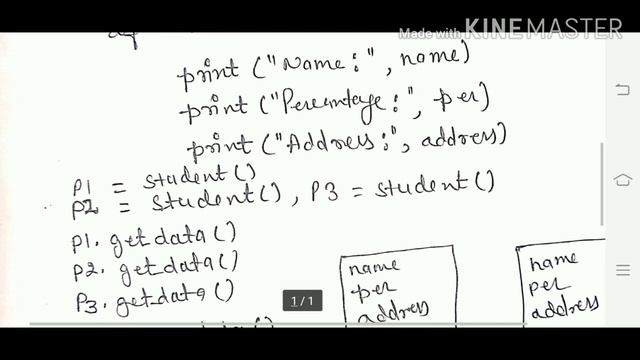 Made with KINEMASTER
print ("Name:", name)
print ("Percentage:", per)
print ("Address:", address)
P1 = student()
P2 = student(), P3 = student()
P1. getdata()
P2. getdata()
P3. getdata()
name
per
address
name
per
address
1/1